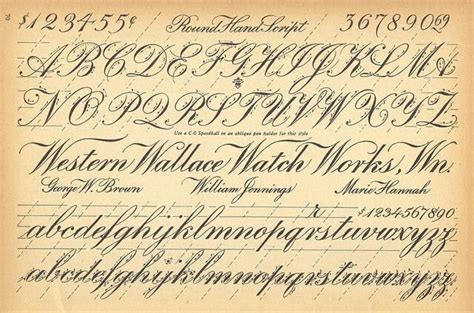 $123455¢ Round Hand Script 367890069
ABCDEFGHIJKLMN
NOPQRSTUVWXYZ
Use a C-6 Speedball in an oblique pen holder for this style
Western Wallace Watch Works, Wn.
George W. Brown William Jennings Marie Hannah
r $1234567890
abcdefghijklmnopqrstuvwxyzz
abcdefghijklmnopqrstuvwxyzz